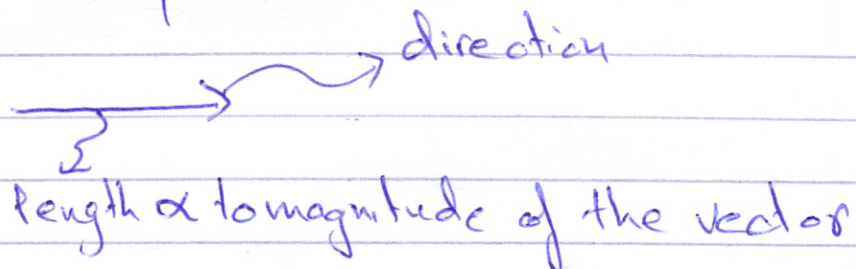 direction
length α to magnitude of the vector